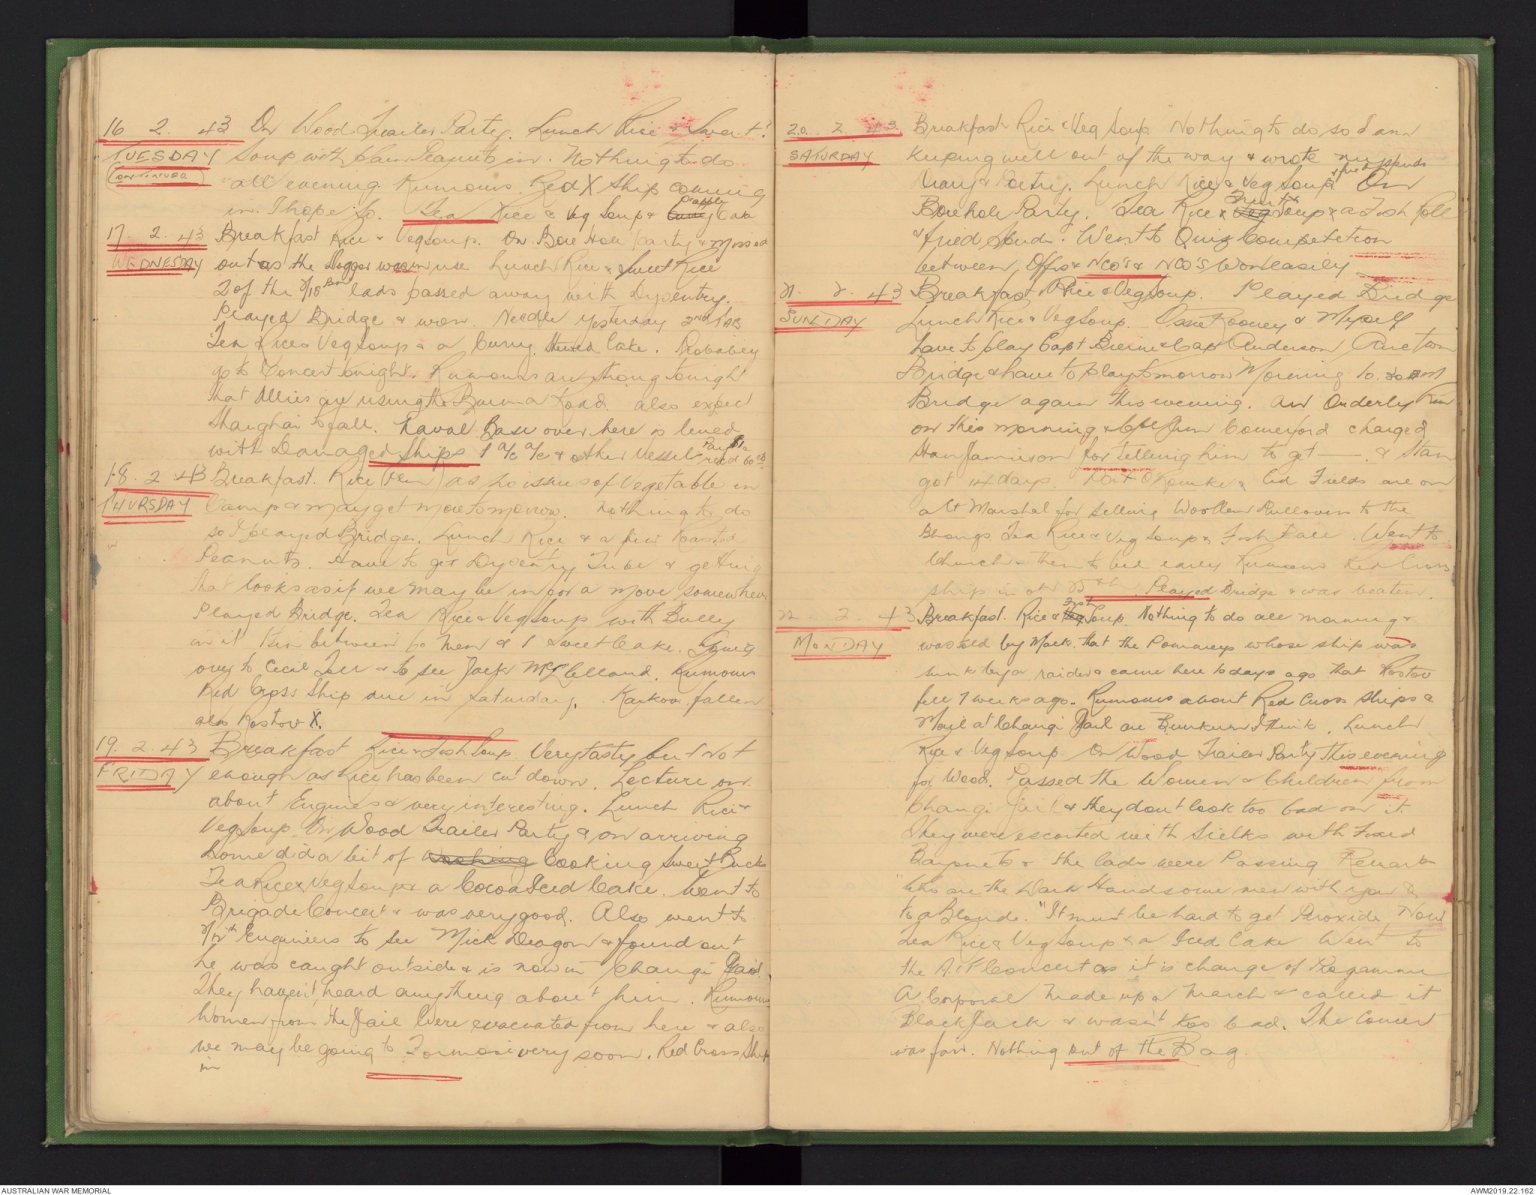 16. 2. 43 On Wood Trailer Party. Lunch Rice & Sweet
TUESDAY Soup with plain Peanuts in. Nothing to do
CONTINUED all evening. Rumours. Red X Ship coming
in. I hope so. Tea Rice & Veg Soup & Cake
17. 2. 43 Breakfast Rice & Veg Soup. On Bore Hole party & missed
WEDNESDAY out as the Auger was in use Lunch Rice & Sweet Rice
2 of the 2/18 Bn lads passed away with Dysentry.
Played Bridge & won. Needle yesterday 2nd TAB
Tea Rice & Veg Soup & a Curry Cake. Probably
go to Concert tonight. Rumours are strong tonight
that Allies are using the Burma Road. also expect
Shanghai to fall. Naval Base over here is lined
with Damaged Ships 1 a/c a/c & other Vessels
18. 2. 43 Breakfast. Rice (Plain) as no issues of Vegetable in
THURSDAY Camp & may get more tomorrow. Nothing to do
so I played Bridge. Lunch Rice & a few Roasted
Peanuts. Have to get Dysentry Tube & getting
that looks as if we may be in for a move somewhere
Played Bridge. Tea Rice & Veg Soup with Bully
in it Tin between 60 men & 1 Sweet Cake. Going
over to Cecil & to see Jack McClelland. Rumours
Red Cross Ship due in Saturday. Karkov fallen
also Rostov X.
19. 2. 43 Breakfast Rice & Fish Soup Very tasty but not
FRIDAY enough as Rice has been cut down. Lecture on
about Engines & very interesting. Lunch Rice &
Veg Soup On Wood Trailer Party & on arriving
home did a bit of Washing Cooking Sweet
Tea Rice & Veg Soup & a Cocoa Iced Cake. Went to
Brigade Concert & was very good. Also went to
2/12th Engineers to see Mick Deagon & found out
he was caught outside & is now in Changi Gaol
They haven't heard anything about him. Rumours
Women from the Jail were evacuated from here & also
we may be going to Formosa very soon. Red Cross Ship
in
20. 2. 43 Breakfast Rice & Veg Soup Nothing to do so I am
SATURDAY keeping well out of the way & wrote my
Diary & Poetry. Lunch Rice & Veg Soup & fried spuds On
Borehole Party. Tea Rice & Soup & a Fish Roll
& fried spuds. Went to Quiz Competition
between Offrs & NCO's & NCO'S Won easily
21. 2. 43 Breakfast, Rice & Veg Soup. Played Bridge
SUNDAY Lunch Rice & Veg Soup. Ossie Rooney & Myself
have to play Capt & Capt Anderson Auction
Bridge & have to play tomorrow Morning 10.30 &
Bridge again this evening. An Orderly Rm
on this morning & Cpl Jim Comerford charged
Stan Jamieson for telling him to get —— & Stan
got 14 days. & Cid Fields are on
a Ct Marshal for selling Woollen Pullovers to the
Tea Rice & Veg Soup & Fish Ball. Went to
Church & then to bed early Rumours Red Cross
ship in on 25th. Played Bridge & was beaten.
22. 2. 43 Breakfast. Rice & Soup. Nothing to do all morning &
MONDAY was told by Mack. that the Pommeys whose ship was
sunk by a raider & came here 10 days ago that Rostov
fell 7 weeks ago. Rumours about Red Cross Ships &
Mail at Changi Jail are Bunkum I think. Lunch
Rice & Veg Soup On Wood Trailer Party this evening
for Wood. Passed the Women & Children from
Changi Jail & they don't look too bad on it.
They were escorted with Sielks with Fixed
Bayonets & the lads were Passing Remark
Who are the Dark Handsome men with you &
to a Blonde. "It must be hard to get Peroxide Now
Tea Rice & Veg Soup & a Iced Cake Went to
the A.I.F Concert as it is change of Programme
A Corporal made up a March & called it
Black Jack & wasn't too bad. The Concert
was fair. Nothing out of the Bag.
AUSTRALIAN WAR MEMORIAL
AWM2019.22.162